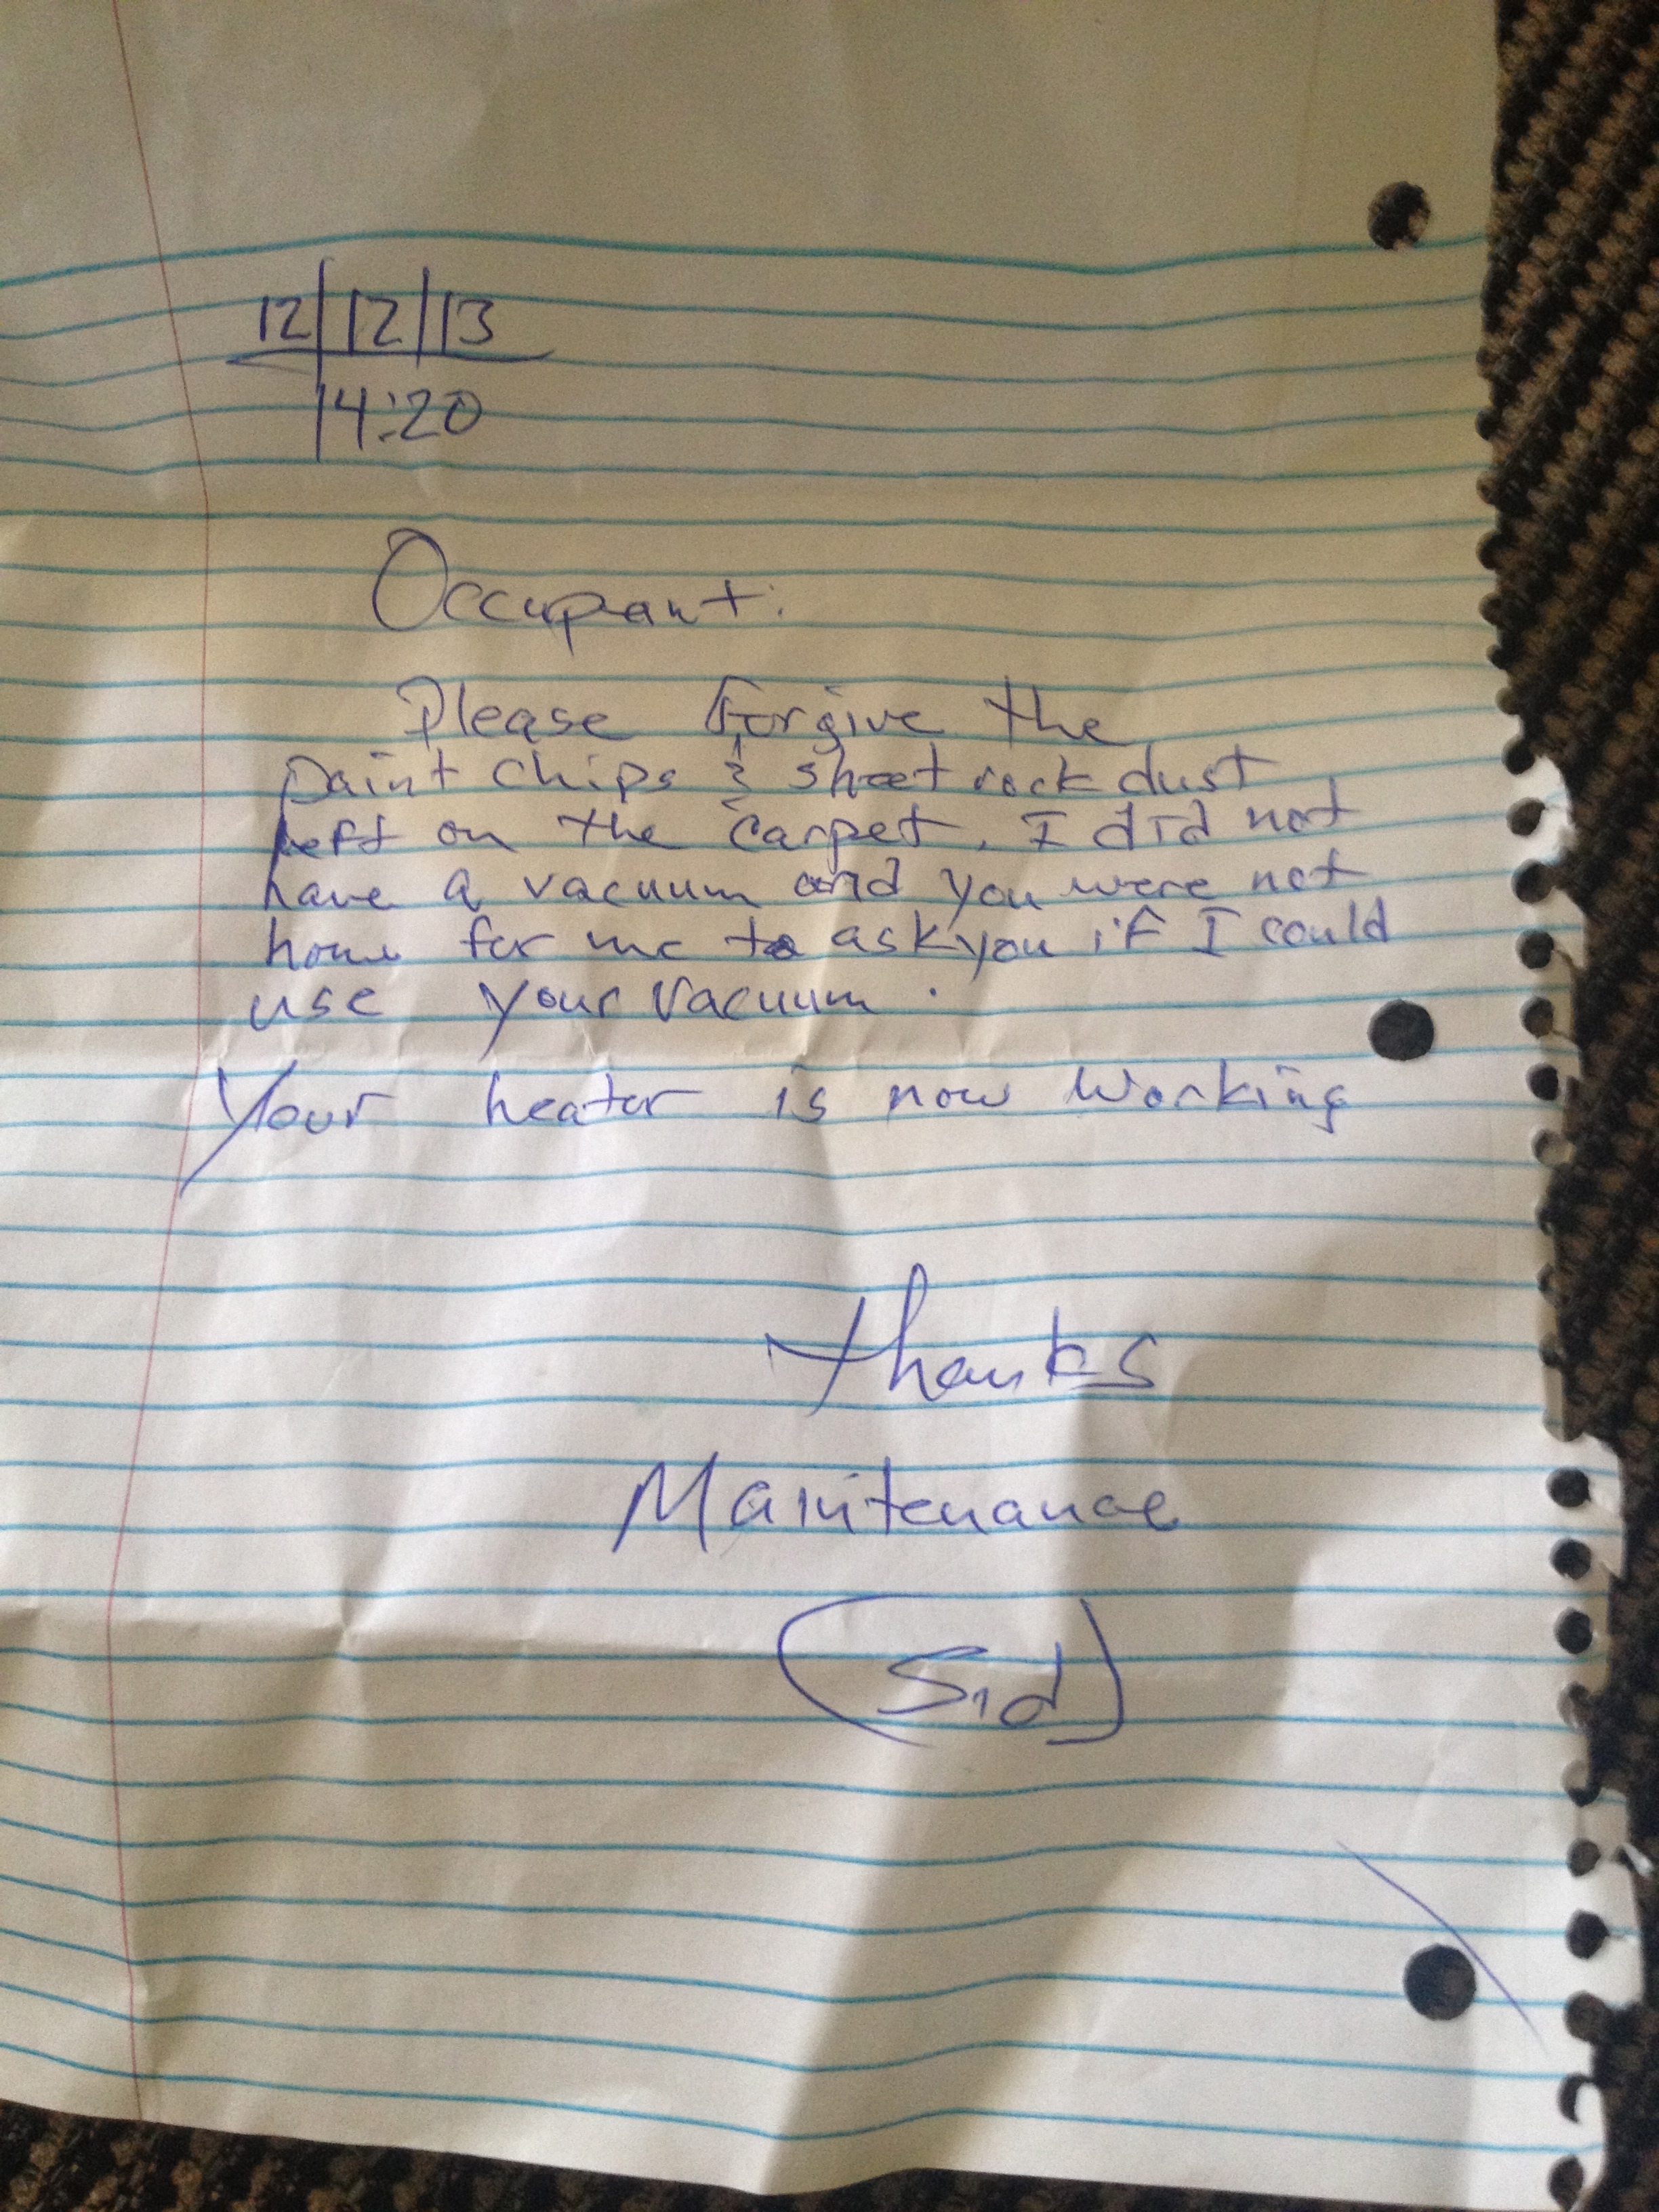 12/12/13
14:20
Occupant:
Please forgive the
paint chips & sheet rock dust
left on the carpet. I did not
have a vacuum and you were not
home for me to ask you if I could
use your vacuum.
Your heater is now working
thanks
Maintenance
(Sid)